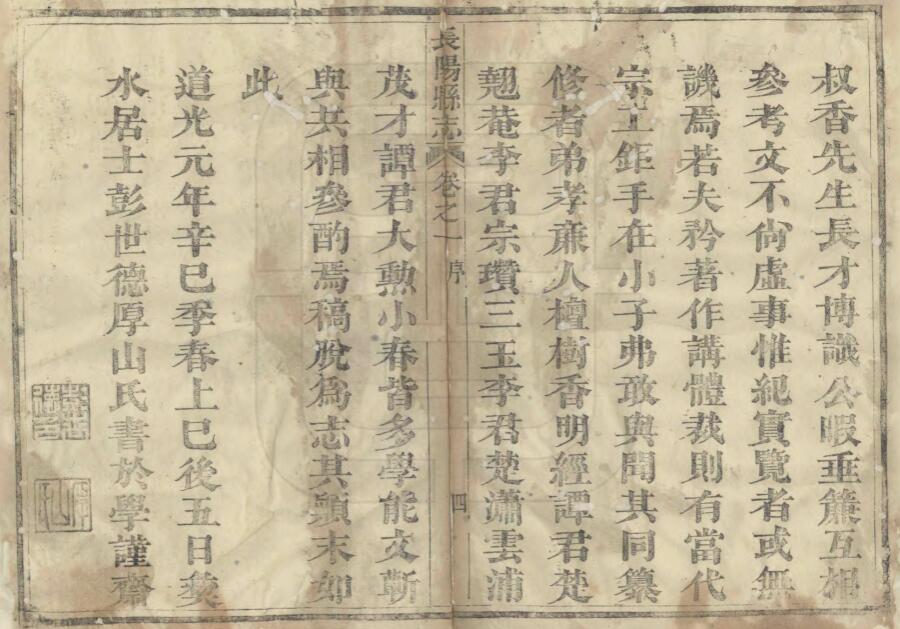 叔香先生長才博識公暇垂簾互相
參考文不尙虛事惟紀實覽者或無
譏焉若夫矜著作講體裁則有當代
宗工鉅手在小子弗敢與聞其同纂
修者弟孝廉人檀樹香明經譚君楚
翹菴李君宗瓚三玉李君楚瀟雲浦
長陽縣志 卷之一 序 四
茂才譚君大勲小春皆多學能文靳
與共相參酌焉稿脫爲志其顚末如
此
道光元年辛巳季春上巳後五日夔
水居士彭世德厚山氏書於學謹齋